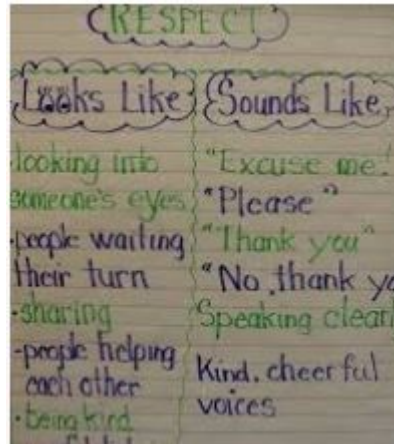 RESPECT
Looks Like
·looking into
someone's eyes
·people waiting
their turn
·sharing
-people helping
each other
·being kind
Sounds Like
"Excuse me!
"Please"
"Thank you"
"No, thank yo
Speaking clearl
Kind, cheerful
voices